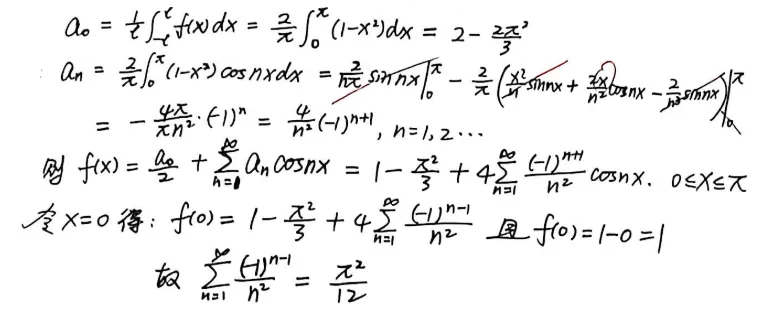 a₀ = 1/ℓ ∫_{-ℓ}^{ℓ} f(x)dx = 2/π ∫₀^π (1-x²)dx = 2 - 2π²/3
aₙ = 2/π ∫₀^π (1-x²) cosnxdx = 2/nπ sin nx |₀^π - 2/π ( x²/n sinnx + 2x/n² cosnx - 2/n³ sinnx ) |₀^π
= - 4π/πn² · (-1)ⁿ = 4/n² (-1)ⁿ⁺¹, n=1, 2 ⋯
则 f(x) = a₀/2 + ∑_{n=1}^{∞} aₙ cosnx = 1 - π²/3 + 4 ∑_{n=1}^{∞} (-1)ⁿ⁺¹/n² cosnx. 0≤x≤π
令 x=0 得: f(0) = 1 - π²/3 + 4 ∑_{n=1}^{∞} (-1)ⁿ⁻¹/n² 因 f(0)=1-0=1
故 ∑_{n=1}^{∞} (-1)ⁿ⁻¹/n² = π²/12